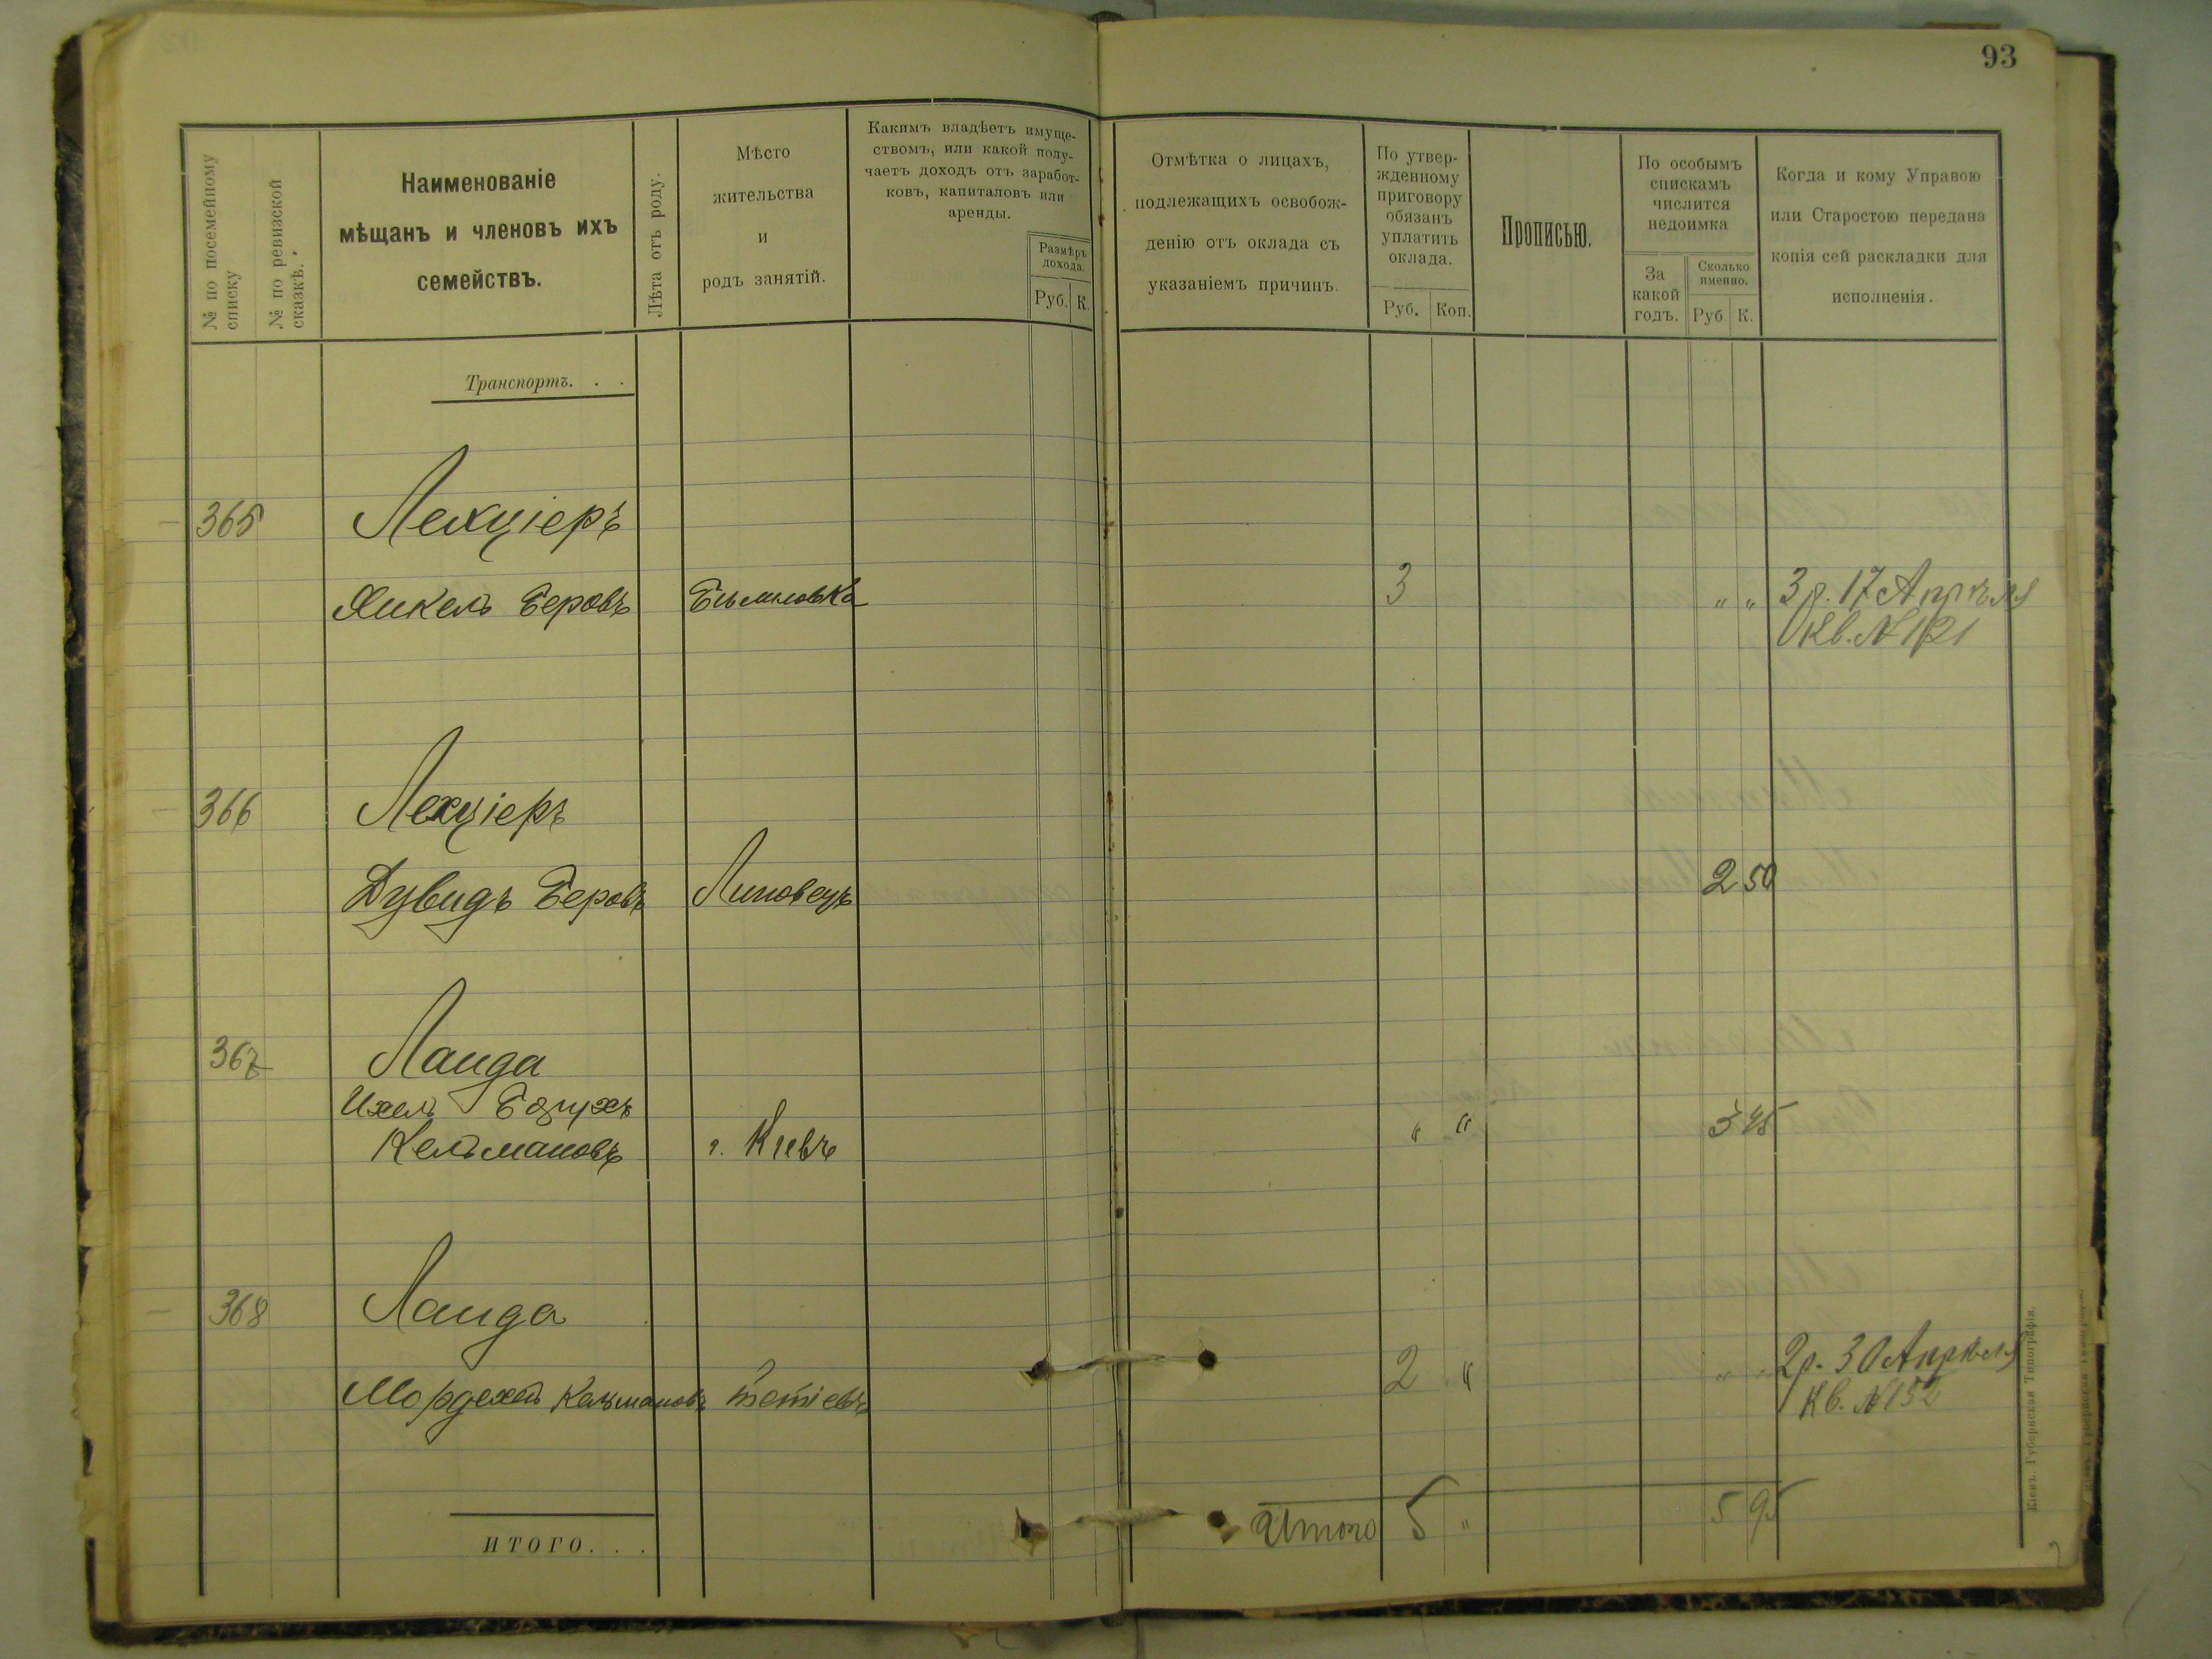 93
№ по посемейному
списку
№ по ревизской
сказкѣ.
Наименованіе
мѣщанъ и членовъ ихъ
семействъ.
Лѣта отъ роду.
Мѣсто
жительства
и
родъ занятій.
Какимъ владѣетъ имуще-
ствомъ, или какой полу-
чаетъ доходъ отъ заработ-
ковъ, капиталовъ или
аренды.
Размѣръ
дохода.
Руб. К.
Отмѣтка о лицахъ,
подлежащихъ освобож-
денію отъ оклада съ
указаніемъ причинъ.
По утвер-
жденному
приговору
обязанъ
уплатить
оклада.
Руб. Коп.
Прописью.
По особымъ
спискамъ
числится
недоимка
За
какой
годъ.
Сколько
именно.
Руб К.
Когда и кому Управою
или Старостою передана
копія сей раскладки для
исполненія.
Транспортъ. . .
365 Лехціеръ
Янкель Беровъ 3 " " 3 р. 17 Апрѣля
Кв. № 121
366 Лехціеръ
Дувидъ Беровъ Липовецъ 2 50
367 Ланда
Ихель Борухъ
Кельмановъ г. Кіевъ " " 3 45
368 Ланда
Мордехай Кельмановъ Тетіевъ 2 " " " 2 р. 30 Апрѣля
Кв. № 152
ИТОГО. . .
Итого 5 " 5 95
Кіевъ. Губернская Типографія.